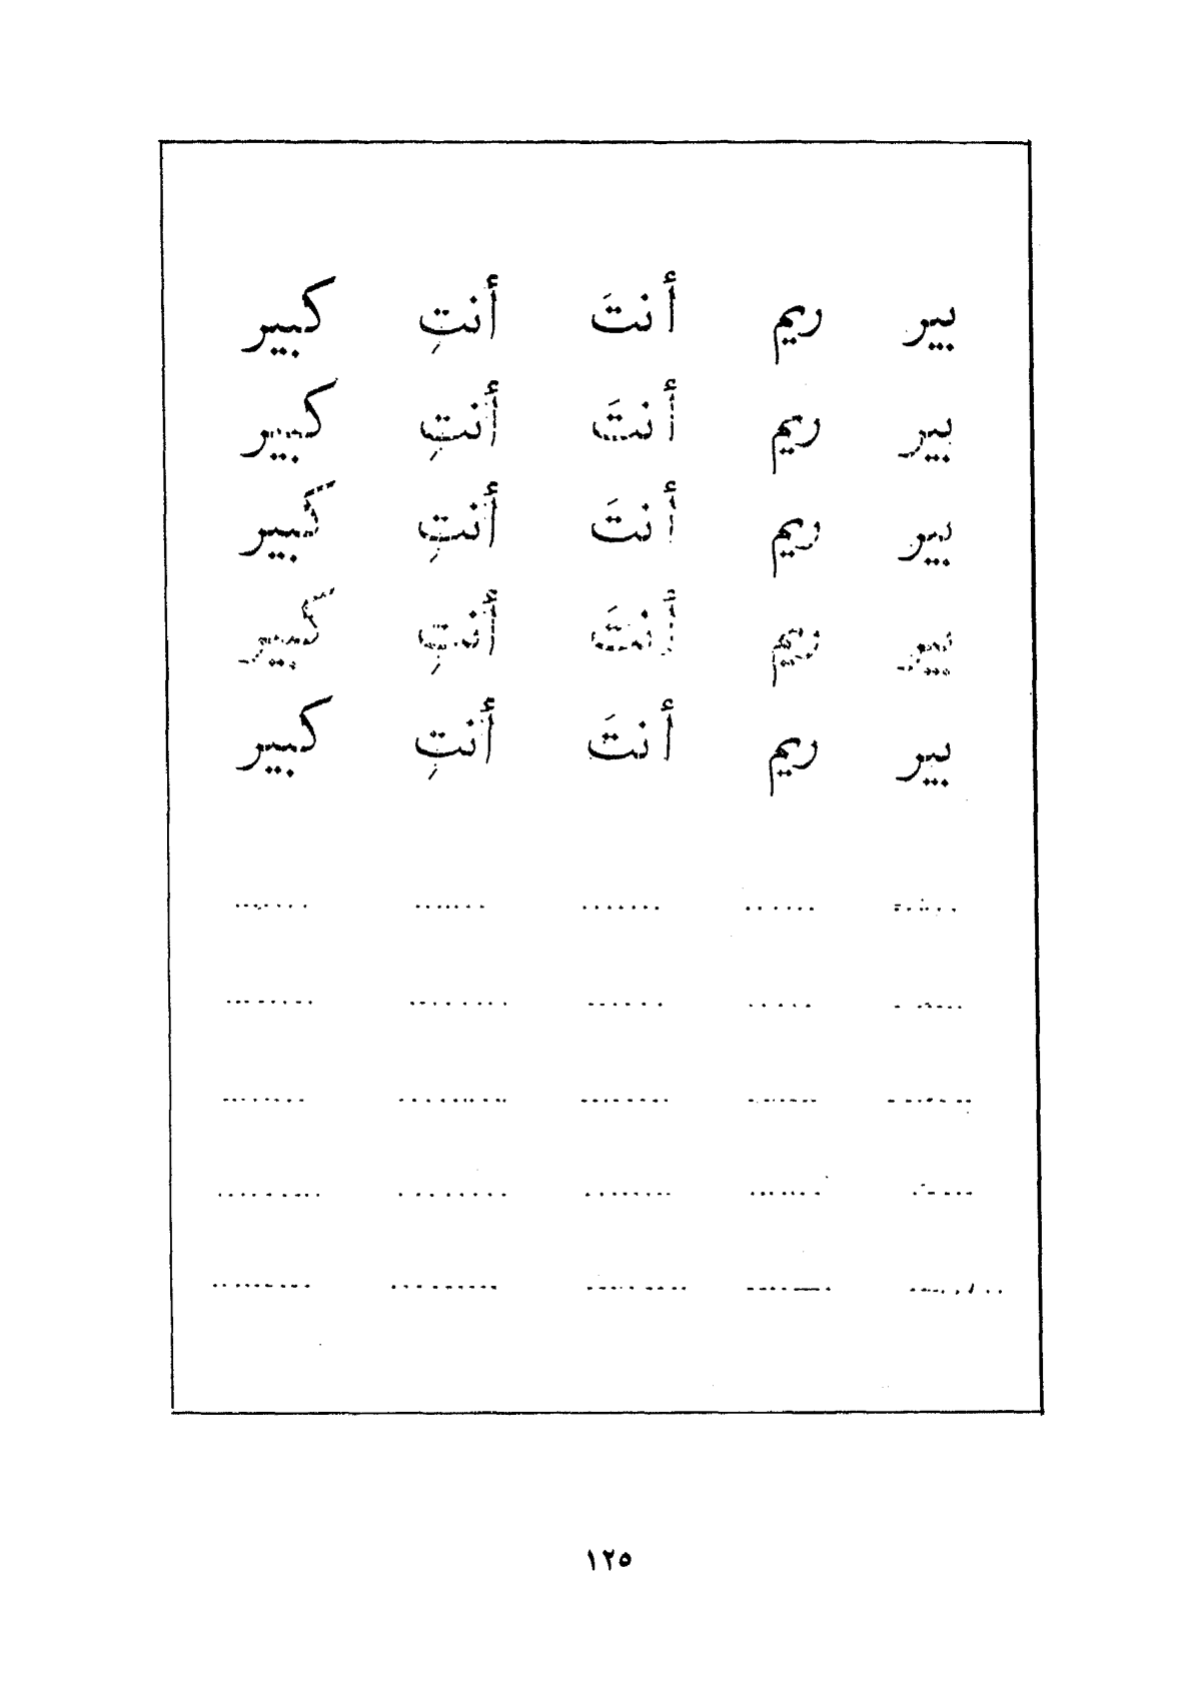 بير ريم أنتَ أنتِ كبير
بير ريم أنتَ أنتِ كبير
بير ريم أنتَ أنتِ كبير
بير ريم أنتَ أنتِ كبير
بير ريم أنتَ أنتِ كبير
١٢٥